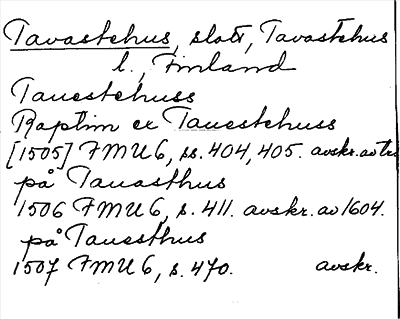 Tavastehus, slott, Tavastehus
l., Finland
Tauestehuss
Raptim ex Tauestehuss
[1505] FMU 6, ss. 404, 405. avskr. av
på Tauasthus
1506 FMU 6, s. 411. avskr. av 1604.
på Tauesthus
1507 FMU 6, s. 470. avskr.